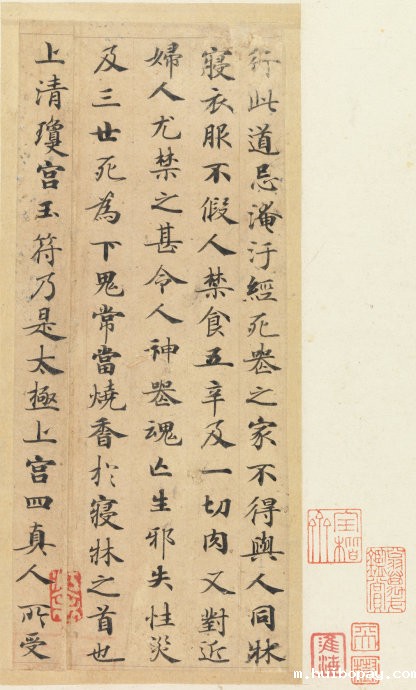 行此道忌淹汙經死喪之家不得與人同牀
寢衣服不假人禁食五辛及一切肉又對近
婦人尤禁之甚令人神喪魂亡生邪失性災
及三世死為下鬼常當燒香於寢牀之首也
上清瓊宮玉符乃是太極上宮四真人所受
m.huibopay.com